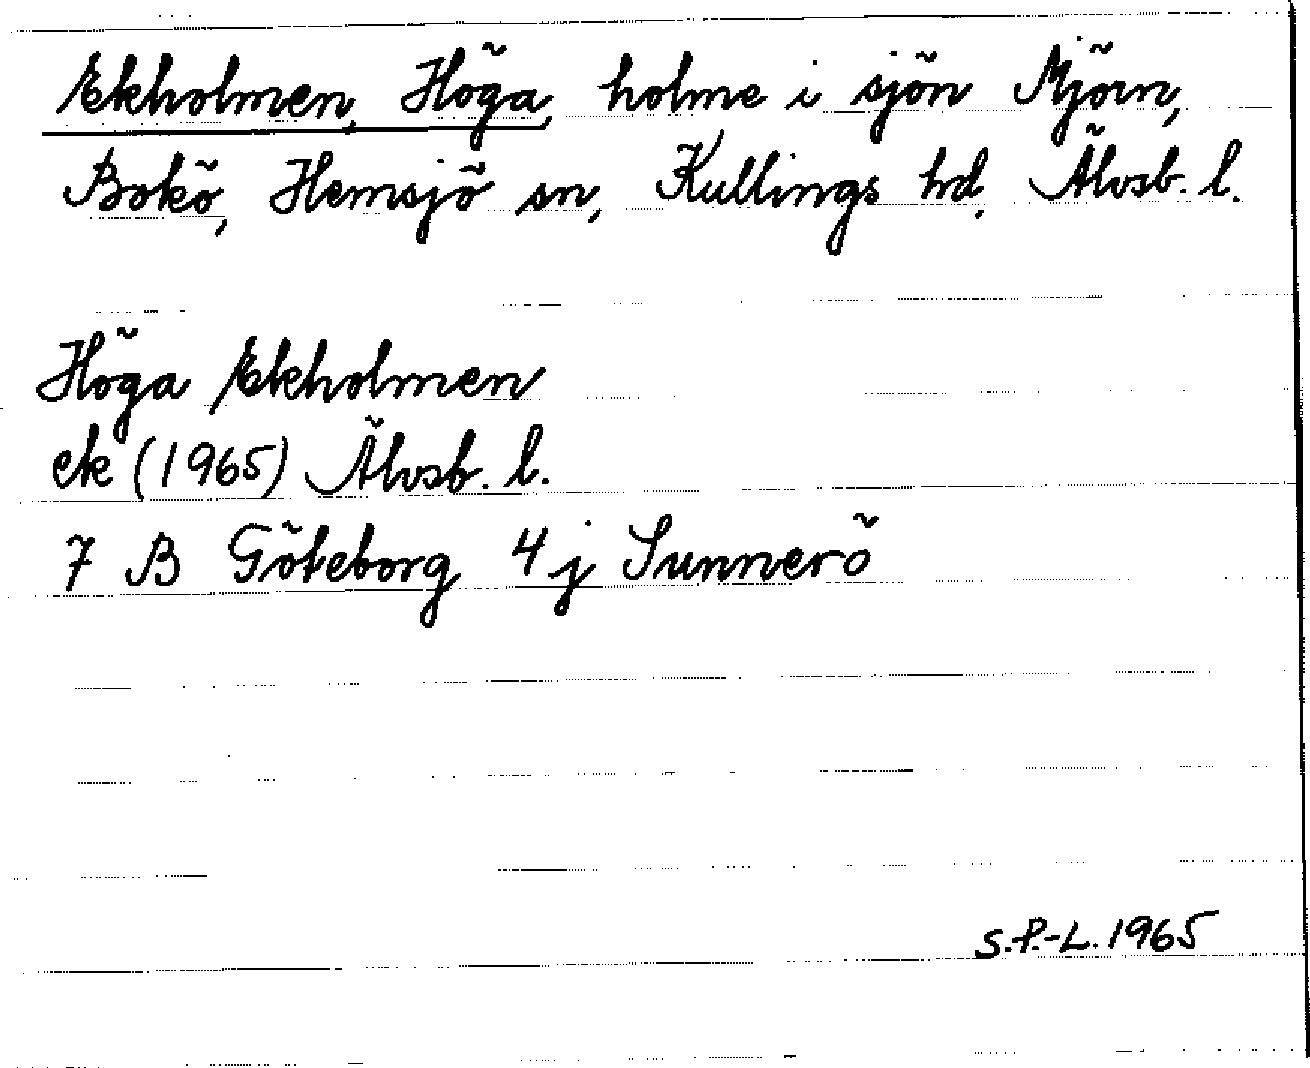 Ekholmen, Höga, holme i sjön Mjörn,
Bokö, Hemsjö sn, Kullings hd, Älvsb. l.
Höga Ekholmen
ek (1965) Älvsb. l.
7 B Göteborg 4 j Sunnerö
S.P.-L. 1965